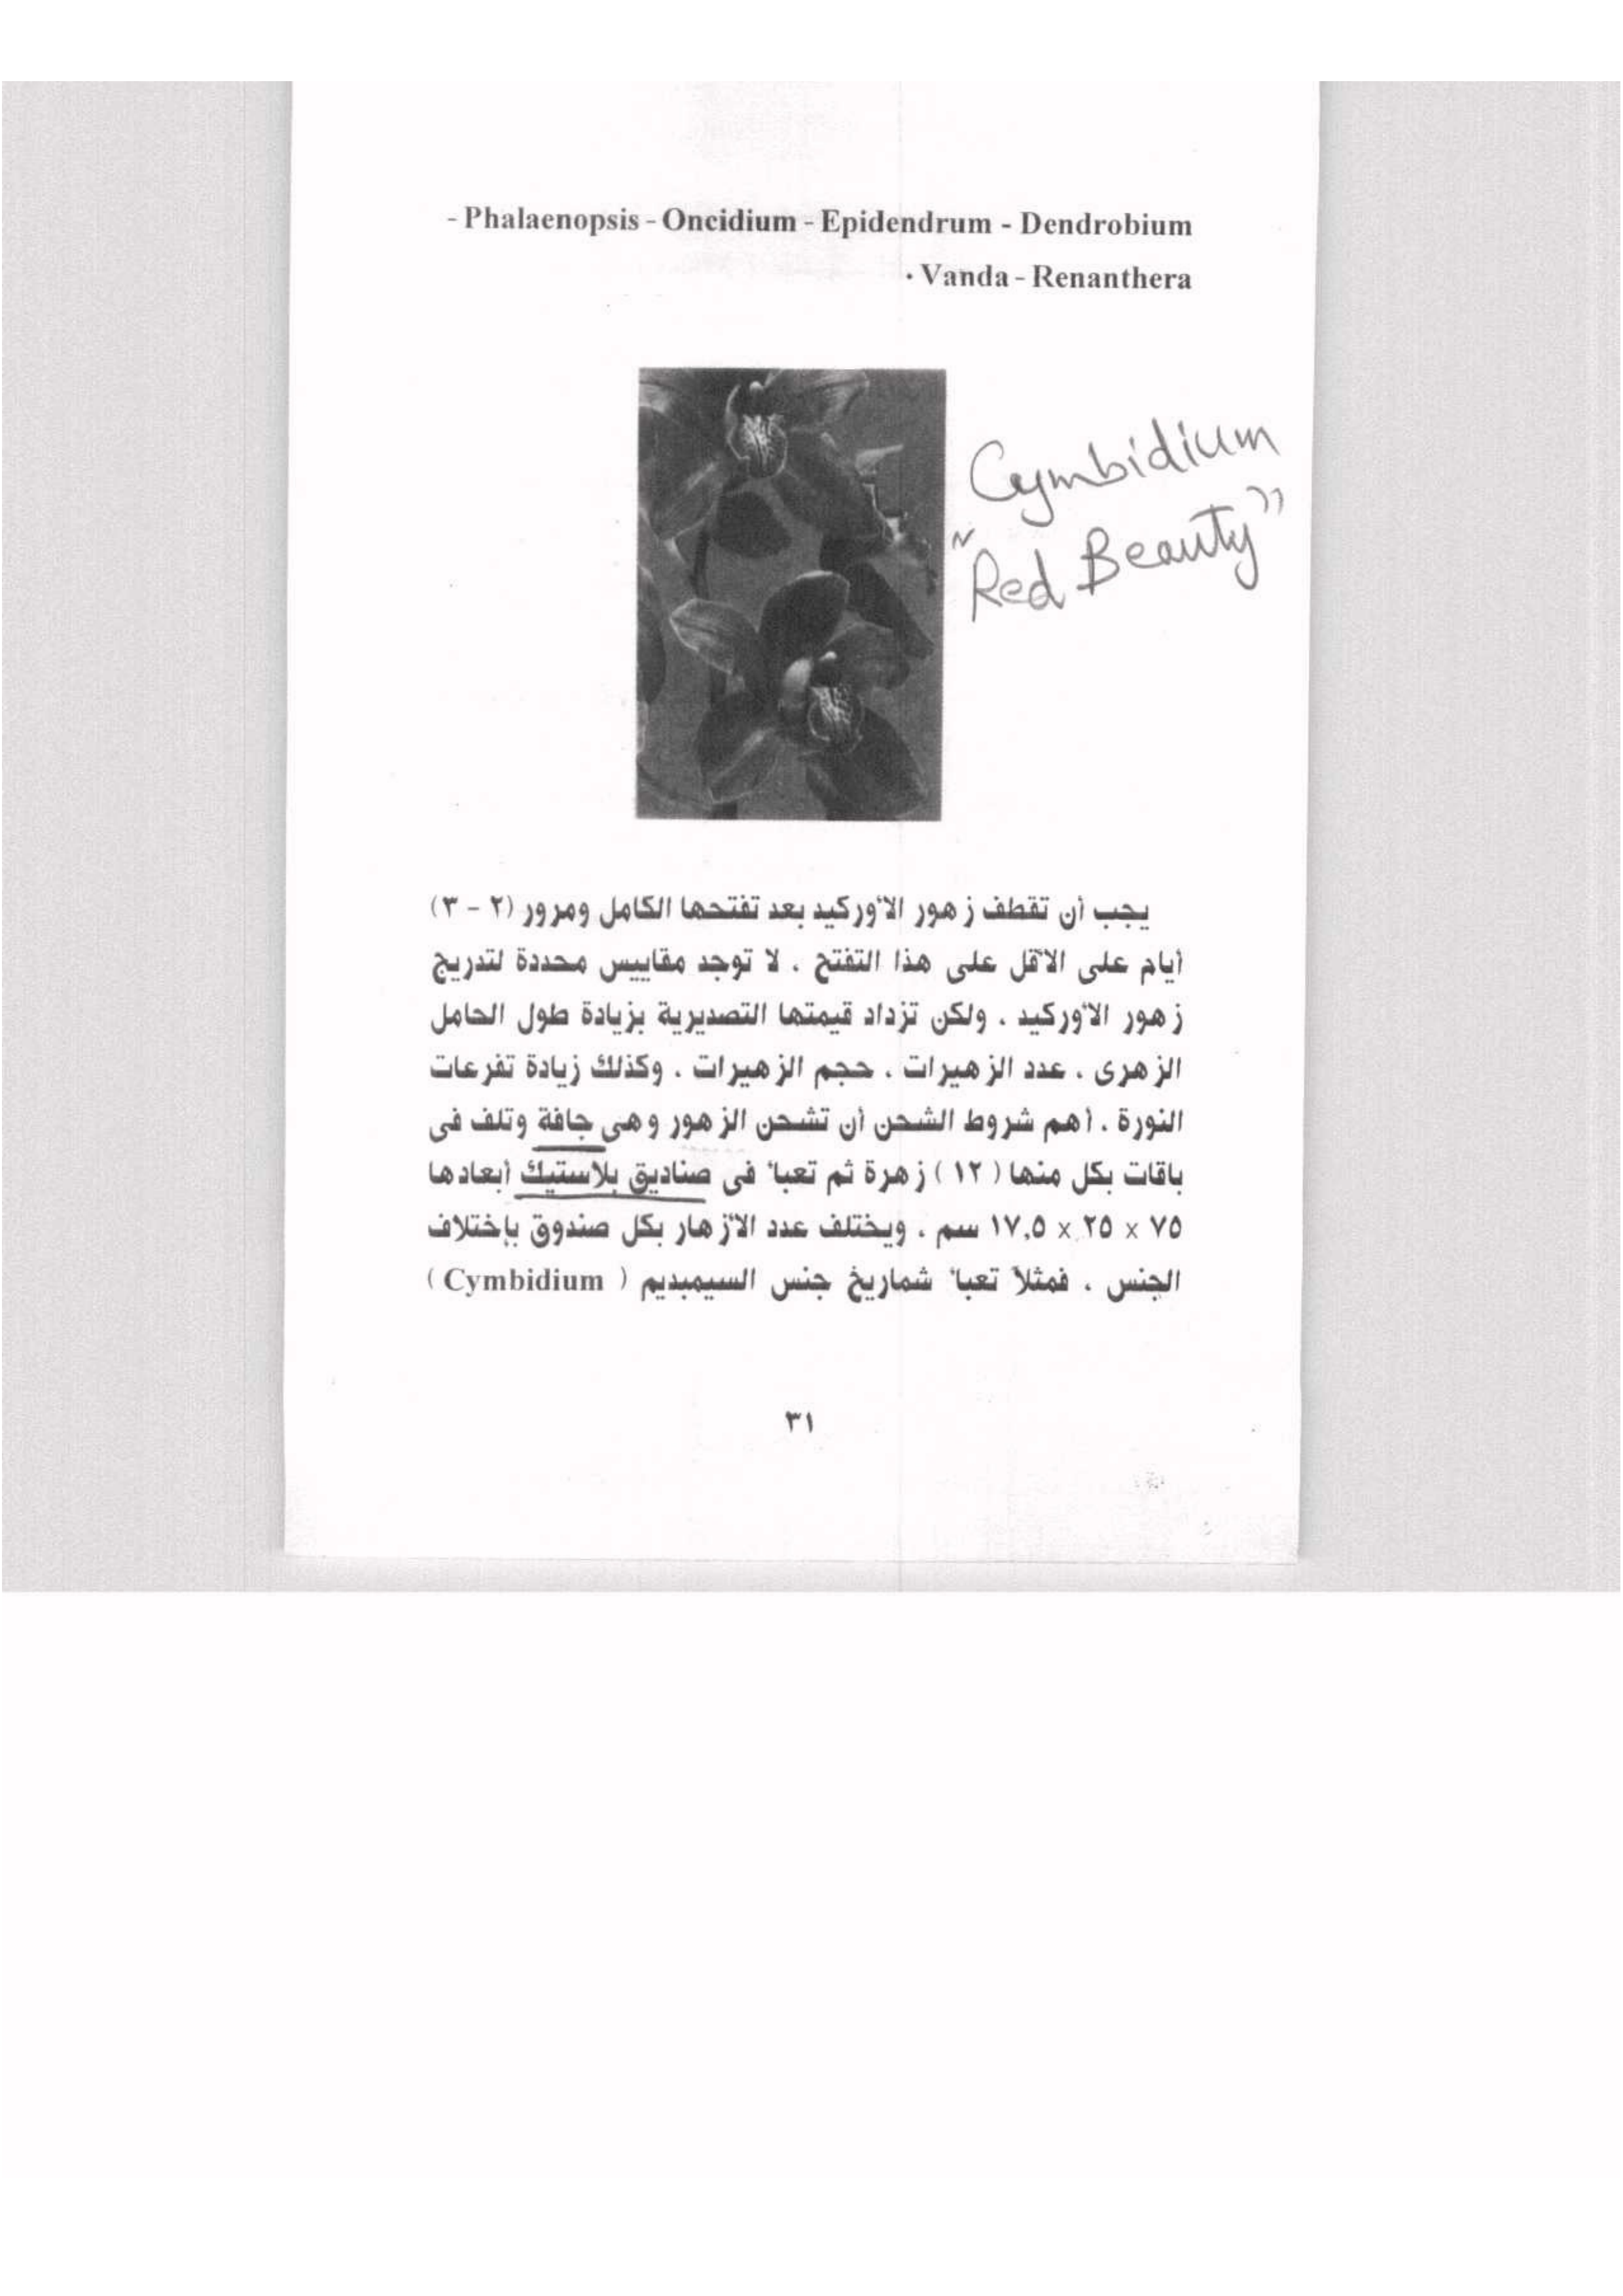 - Phalaenopsis - Oncidium - Epidendrum - Dendrobium
. Vanda - Renanthera
Cymbidium
"Red Beauty"
يجب أن تقطف زهور الأوركيد بعد تفتحها الكامل ومرور (٢ - ٣)
أيام على الأقل على هذا التفتح . لا توجد مقاييس محددة لتدريج
زهور الأوركيد . ولكن تزداد قيمتها التصديرية بزيادة طول الحامل
الزهرى . عدد الزهيرات . حجم الزهيرات . وكذلك زيادة تفرعات
النورة . أهم شروط الشحن أن تشحن الزهور وهى جافة وتلف فى
باقات بكل منها ( ١٢ ) زهرة ثم تعبأ فى صناديق بلاستيك أبعادها
٧٥ × ٢٥ × ١٧,٥ سم . ويختلف عدد الأزهار بكل صندوق بإختلاف
الجنس . فمثلاً تعبأ شماريخ جنس السيمبديم ( Cymbidium )
٣١